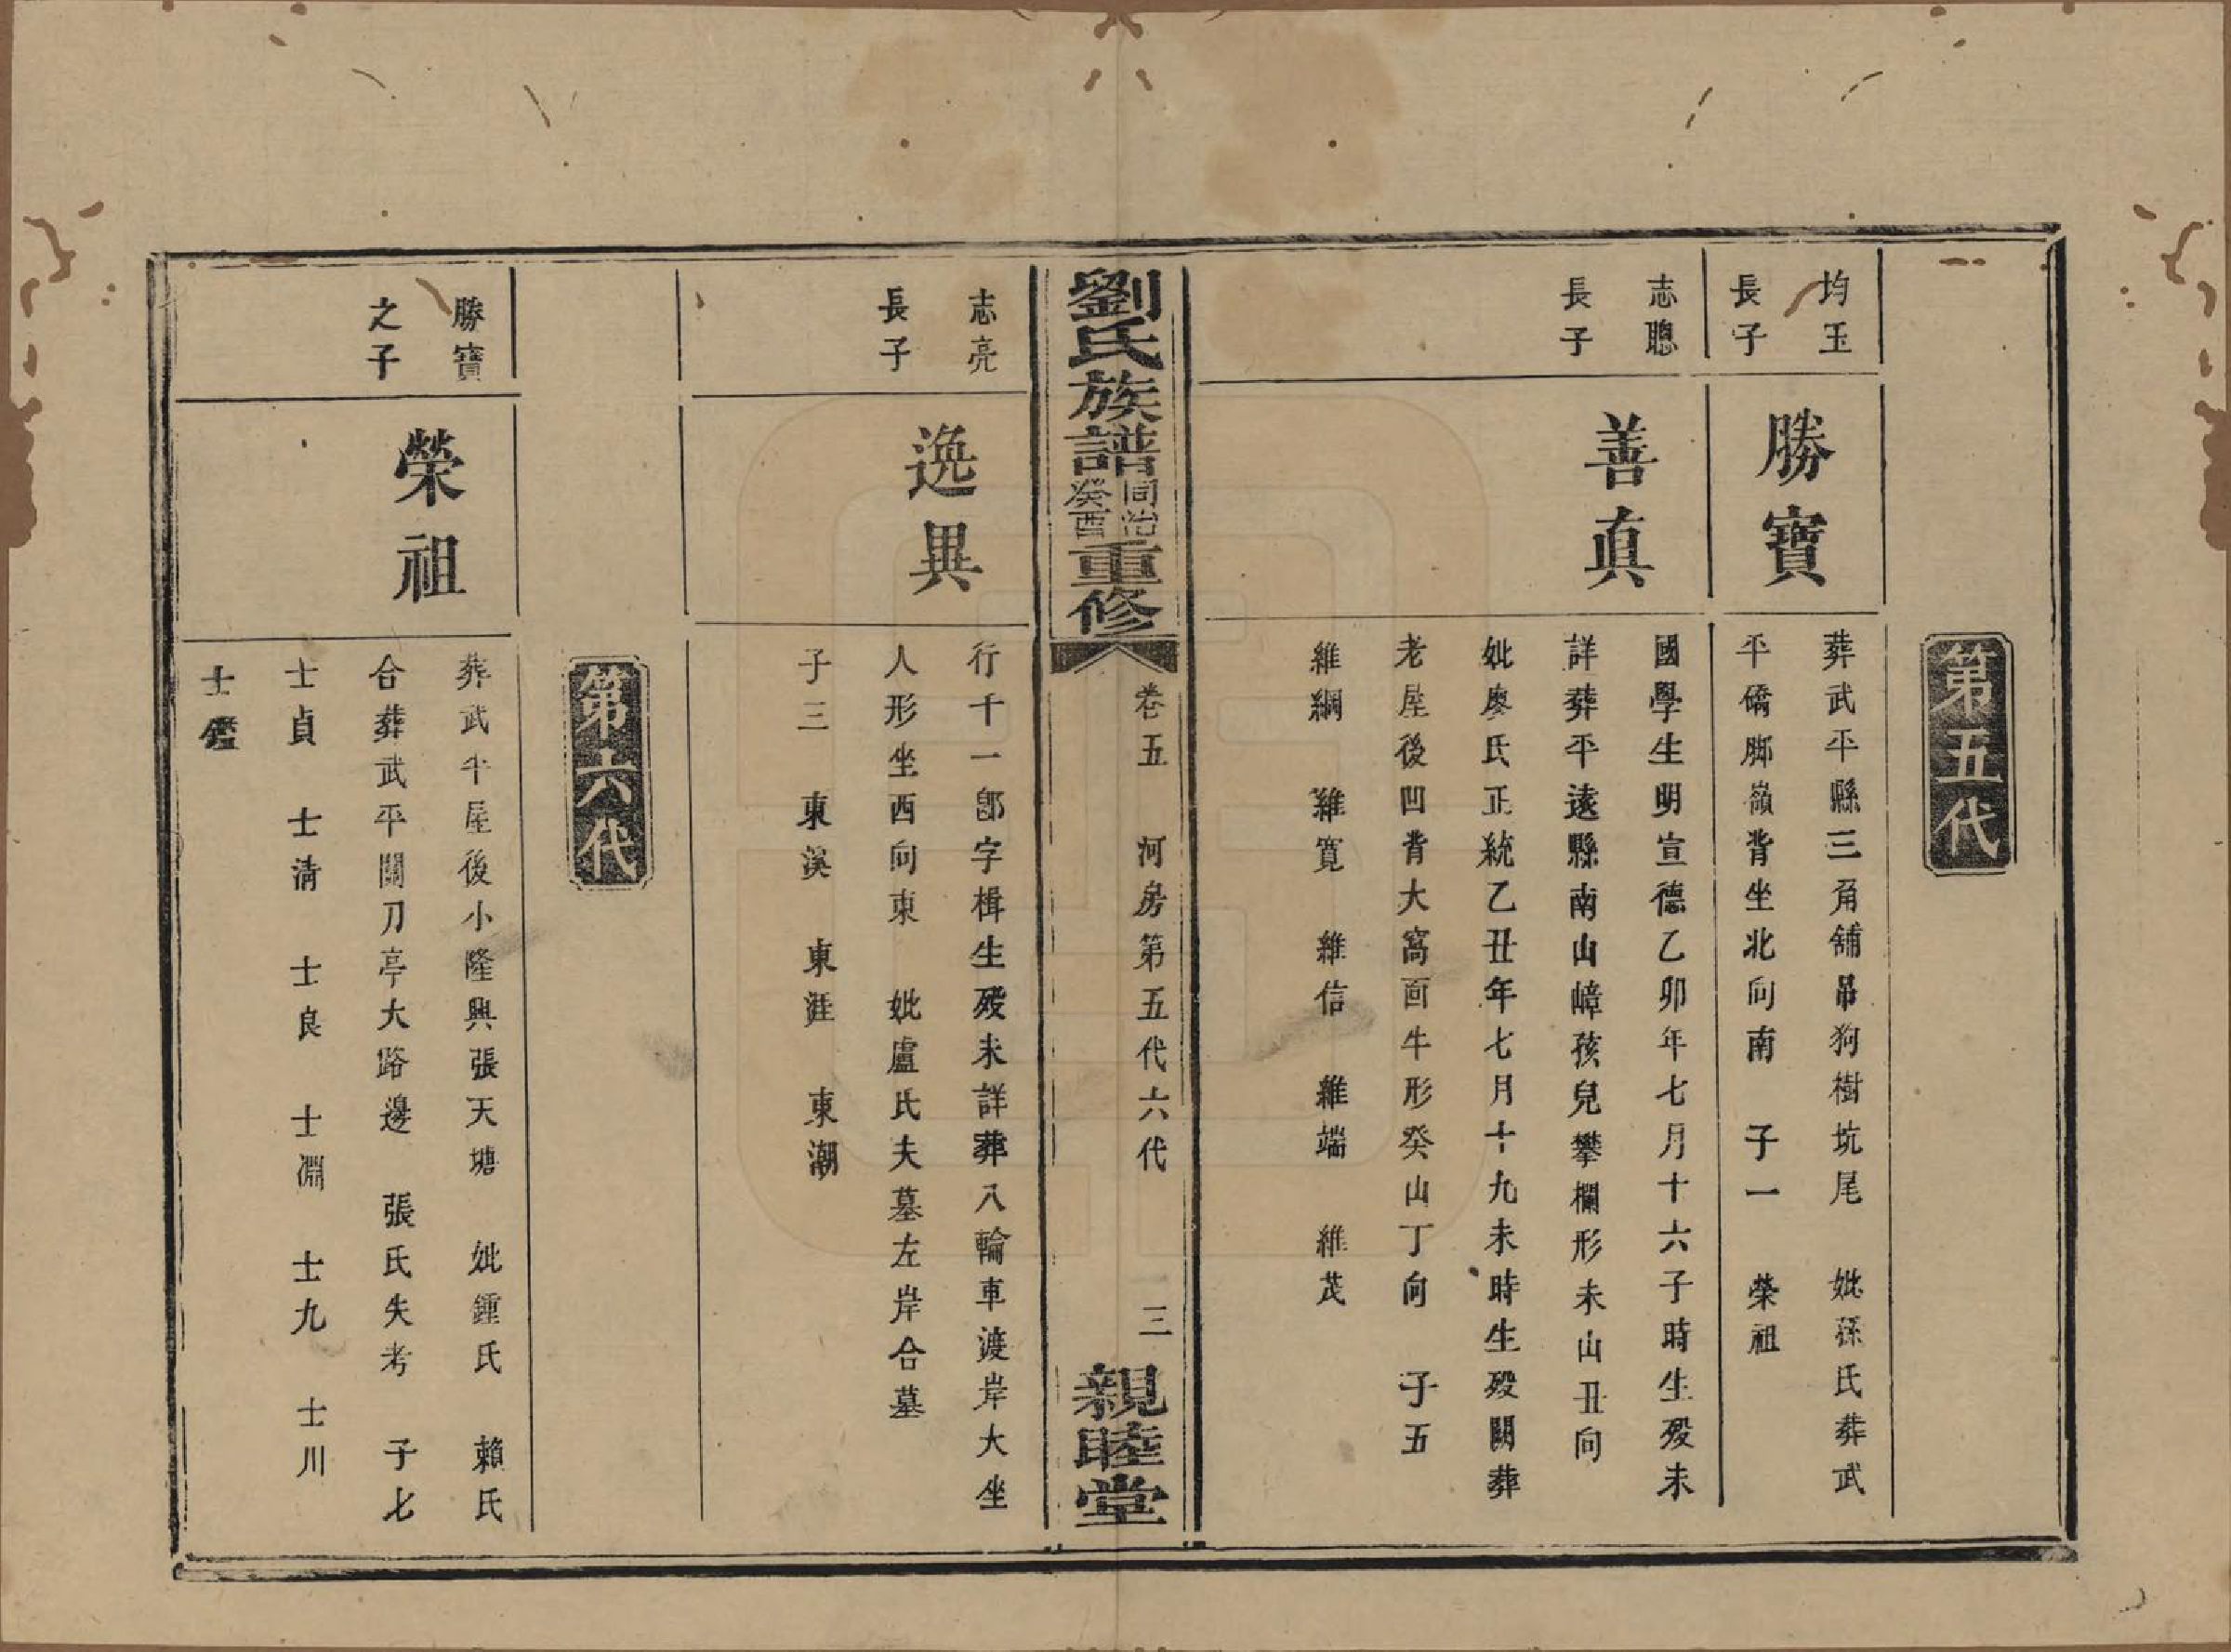 第五代
均玉
長子
勝寶
葬武平縣三角舖吊狗樹坑尾　妣孫氏葬武
平僑脚嶺背坐北向南　子一　榮祖
志聰
長子
善真
國學生明宣德乙卯年七月十六子時生歿未
詳葬平遠縣南山嶂孩兒攀欄形未山丑向
妣廖氏正統乙丑年七月十九未時生歿闕葬
老屋後凹背大窩面牛形癸山丁向　子五
維綱　維寬　維信　維端　維茂
劉氏族譜
同治
癸酉
重修
卷五　河房第五代六代　三
親睦堂
志亮
長子
逸異
行千一郎字楫生歿未詳葬八輪車渡岸大坐
人形坐西向東　妣盧氏夫墓左岸合墓
子三　東溪　東涯　東潮
第六代
勝寶
之子
榮祖
葬武平屋後小隆興張天塘　妣鍾氏　賴氏
合葬武平關刀亭大路邊　張氏失考　子七
士貞　士清　士良　士淵　士九　士川
士鑑